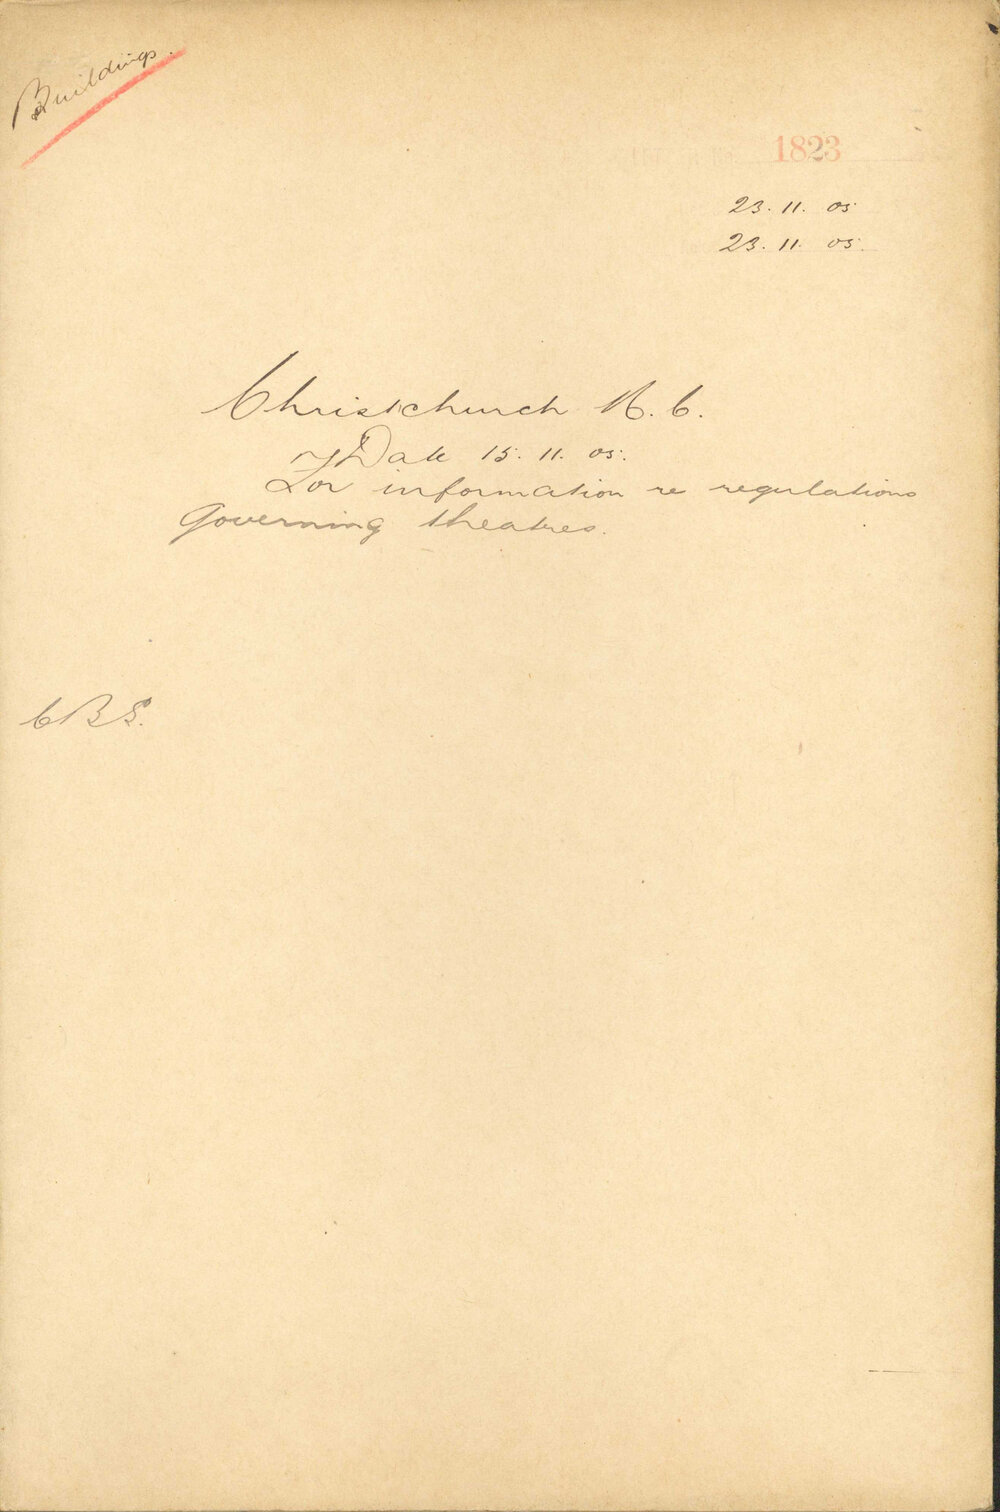 Buildings.
1823
23. 11. 05
23. 11. 05.
Christchurch N. C.
Date 15. 11. 05.
For information re regulations
Governing theatres.
C B S.